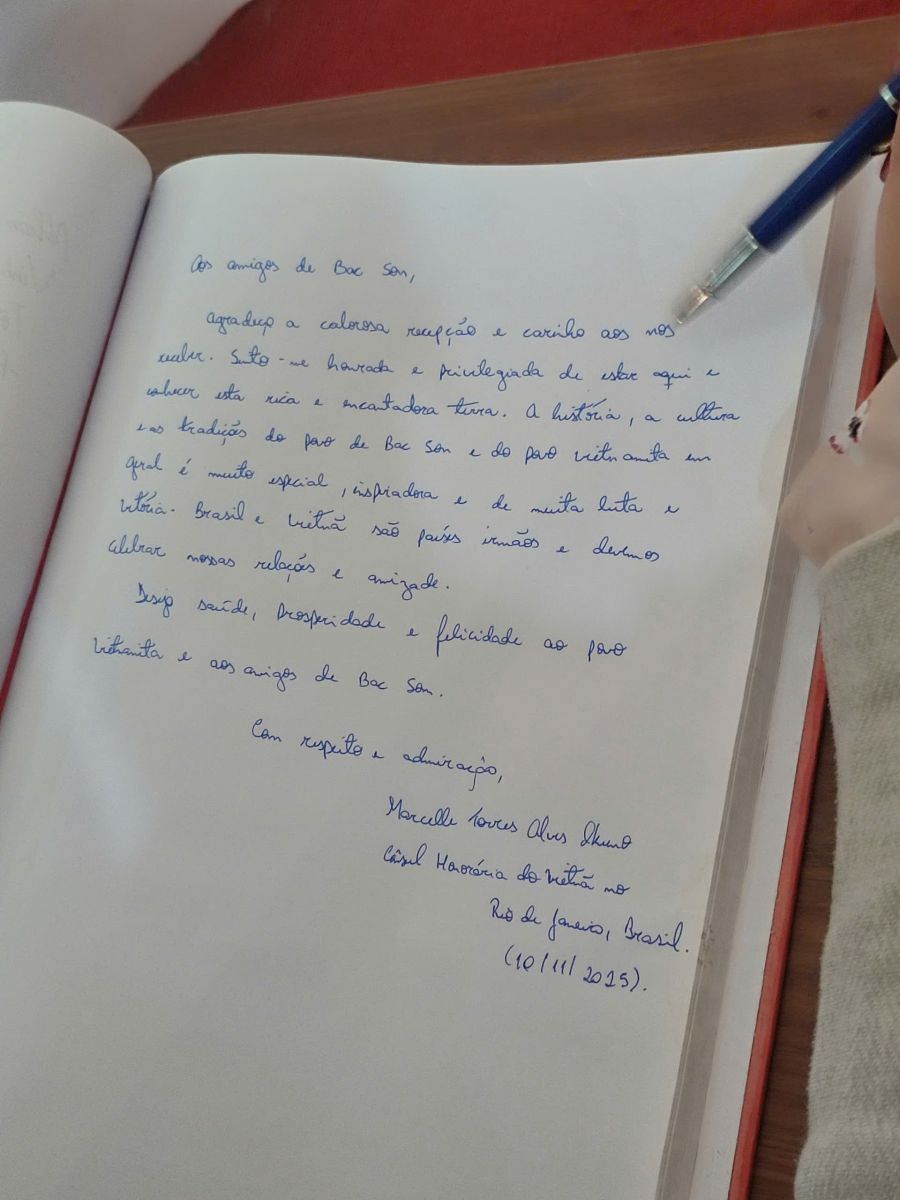 Aos amigos de Bac Son,
Agradeço a calorosa recepção e carinho aos nos
receber. Sinto-me honrada e privilegiada de estar aqui e
conhecer esta rica e encantadora terra. A história, a cultura
e as tradições do povo de Bac Son e do povo vietnamita em
geral é muito especial, inspiradora e de muita luta e
vitória. Brasil e Vietnã são países irmãos e devemos
celebrar nossas relações e amizade.
Desejo saúde, prosperidade e felicidade ao povo
vietnamita e aos amigos de Bac Son.
Com respeito e admiração,
Marcelle Torres Alves Okuno
Cônsul Honorária do Vietnã no
Rio de Janeiro, Brasil.
(10/11/2025).